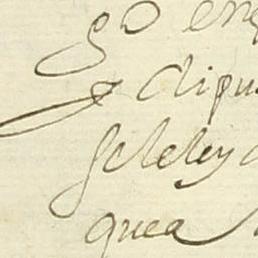 go en
y dipu
se le ley
quea